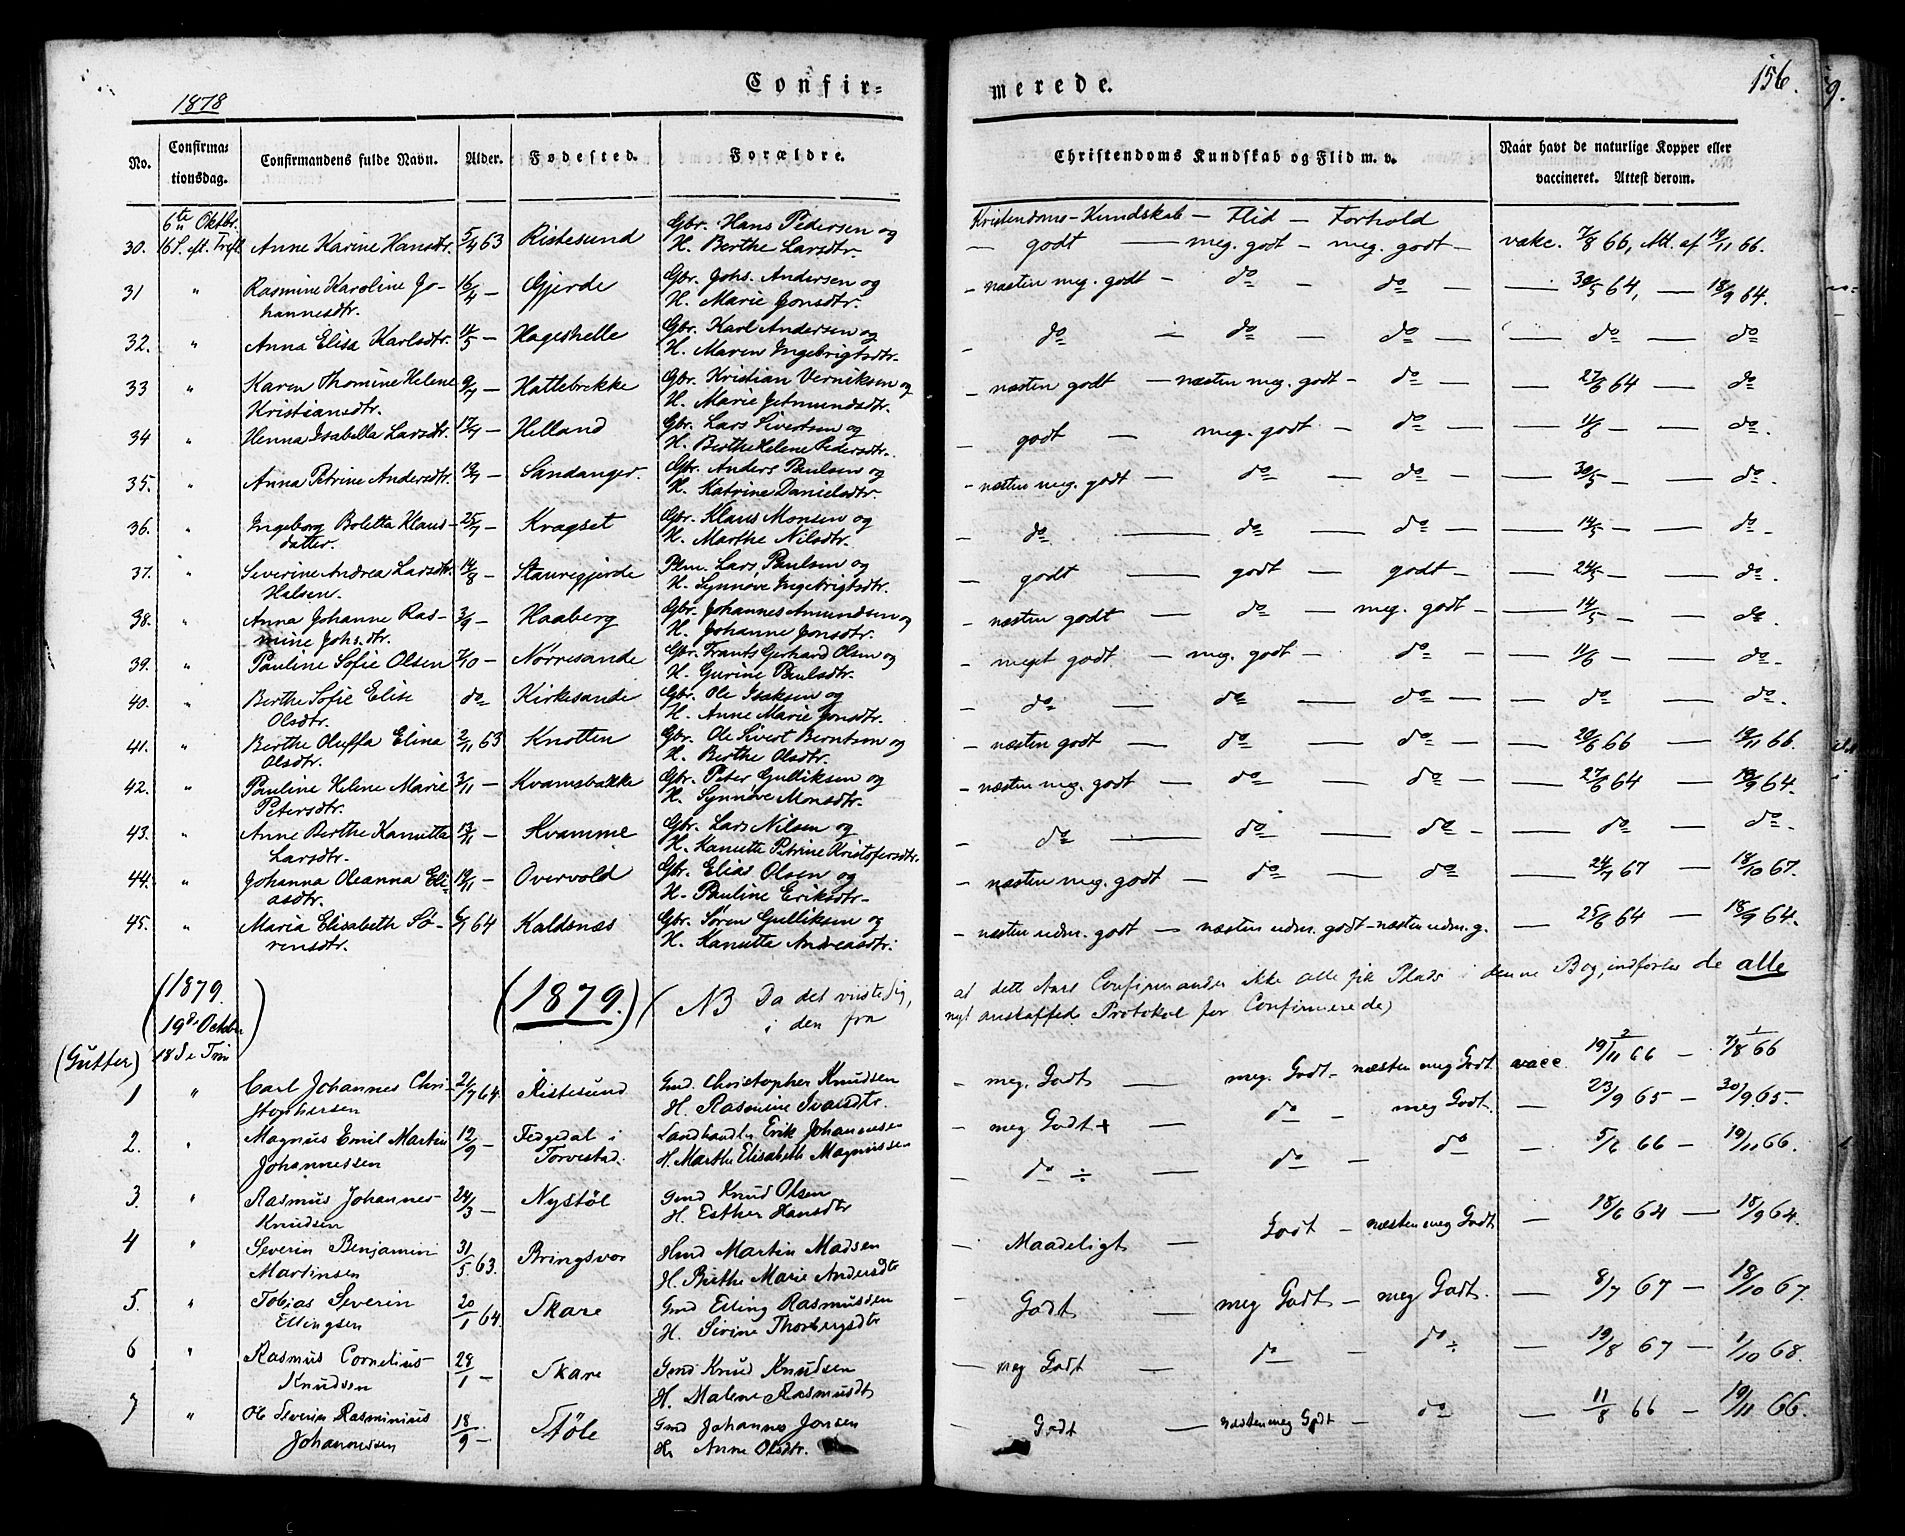 Confir-
merede.
156.
1878
No.
Confirma-
tionsdag.
Confirmandens fulde Navn.
Alder.
Fødested.
Forældre.
Christendoms Kundskab og Flid m. v.
Naar havt de naturlige Kopper eller
vaccineret. Attest derom.
6te Oktbr. Gbr. Hans Pedersen og Kristendoms-Kundskab — Flid — Forhold
30. 16 S. eft. Tref. Anne Karine Hansdtr. 5/4 63 Ristesund H. Berthe Larsdtr. — godt — meg. godt — meg. godt — vakc. 7/8 66, Att. af 19/11 66.
31 " Rasmine Karoline Jo- 16/4 — Gjerde Gbr. Johs. Andersen og - næsten meg. godt - do — do — 30/5 64, — 18/9 64.
hannesdtr. H. Marie Jonsdtr.
32. " Anna Elisa Karlsdtr. 14/5 — Hageshelle Gbr. Karl Andersen og — do — do — do — do — do
H. Maren Ingebrigtsdtr.
33 " Karen Thomine Helene 9/7 — Hattebrekke Gbr. Kristian Verniksen og - næsten godt — næsten meg. godt - do — 27/6 64 — do
Kristiansdtr. H. Marie Jetmundsdtr.
34 " Henna Isabella Larsdtr. 17/7 — Helland Gbr. Lars Sivertsen og — godt — meg. godt — do — 11/6 — do.
H. Berthe Helene Pedersdtr.
35. " Anna Petrine Andersdtr. 19/7 — Sandanger. Gbr. Anders Paulsen og - næsten meg. godt — do — do — 30/5 — do.
H. Katrine Danielsdtr.
36. " Ingeborg Boletta Klaus- 25/7 — Kragset Gbr. Klaus Monsen og — do — do — do — 14/5 — do
datter. H. Marthe Nilsdtr.
37. " Severine Andrea Larsdtr. 14/8 — Stauregjerde Plm. Lars Paulsen og — godt — godt — godt — 24/5 — do.
Halsen. H. Synnøve Ingebrigtsdtr.
38. " Anna Johanne Ras- 3/9 — Haaberg Gbr. Johannes Amundsen og - næsten godt — do — meg. godt — 14/5 — do.
mine Johsdtr. H. Johanne Jonsdtr.
39. " Pauline Sofie Olsen 7/10 — Nørresande Gbr. Frants Gerhard Olsen og - meget godt — meg. godt — do — 11/6 — do.
H. Gurine Paulsdtr.
40. " Berthe Sofie Elise do Kirkesande Gbr. Ole Isaksen og — do — do — do — do — do.
Olsdtr. H. Anne Marie Jonsdtr.
41. " Berthe Oluffa Elina 2/11 63 Knotten Gbr. Ole Sivert Berntsen og - næsten godt — do — do — 20/6 66 — 19/11 66.
Olsdtr. H. Berthe Olsdtr.
42. " Pauline Helene Marie 3/11 — Kvamsbakke Gbr. Peter Gulliksen og - næsten meg. godt — do — do — 27/6 64 — 18/9 64.
Petersdtr. H. Synnøve Monsdtr.
43. " Anne Berthe Kanutta 13/11 — Kvamme Gbr. Lars Nilsen og — do — do — do — do — do.
Larsdtr. H. Kanutte Petrine Kristofersdtr.
44. " Johanna Oleanna Eli- 19/11 — Overvold Gbr. Elias Olsen og - næsten meg. godt — do — do — 24/7 67 — 18/10 67.
asdtr. H. Pauline Eriksdtr.
45. " Maria Elisabeth Sø- 6/1 64 Kaldsnæs Gbr. Søren Gulliksen og - næsten udm. godt — næsten udm. godt - næsten udm. g. — 25/6 64 — 18/9 64.
rensdtr. H. Kanutte Andreasdtr.
(1879. (1879.) (NB Da det viiste sig, at dett Aars Confirmander ikke alle fik Plads i denne Bog, indføres de alle
19de Octbr) i den fra nyt anskaffed. Protokol for Confirmerede)
(Gutter) 18 S. e Trin
1 " Carl Johannes Chri- 21/7 64. Ristesund Gmd. Christopher Knudsen - meg. Godt — meg. Godt - næsten meg Godt vacc. 19/11 66 — 7/8 66
stophersen H. Rasmine Ivarsdtr.
2. " Magnus Emil Martin 12/9 — Fedgedal i Landhandler Erik Johannesen - meg Godt + — do — meg Godt. — 23/9 65 — 30/9 65.
Johannessen Torvestad. H. Marthe Elisabeth Magnussen
3 " Rasmus Johannes 24/3 — Nystøl Gmd Knud Olsen — do ÷ — do — do — 5/6 66 — 19/11 66.
Knudsen H. Esther Hansdtr
4 " Severin Benjamin 31/5 63. Bringsvor Hmd Martin Madsen — Maadeligt — Godt — næsten meg Godt — 18/6 64 — 18/9 64.
Martinsen H. Birthe Marie Andersdtr
5. " Tobias Severin 20/1 64. Skare Gmd Elling Rasmussen — Godt — meg Godt — meg Godt. — 8/7 67 — 18/10 67.
Ellingsen H. Sirine Thorbergsdtr
6 " Rasmus Cornelius 28/1 — Skare Gmd Knud Knudsen — meg Godt — do — do ÷ — 19/8 67 — 1/10 68.
Knudsen H. Malene Rasmusdt
7 " Ole Severin Rasminius 18/9 — Støle Gmd Johannes Jonsen — Godt — næsten meg Godt — do — 11/8 66 — 19/11 66.
Johannesen H. Anne Olsdtr.